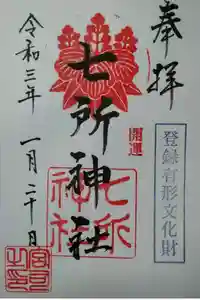 奉拝
開運
登録有形文化財
七所神社
七所神社
令和三年 一月二十日
宮司之印